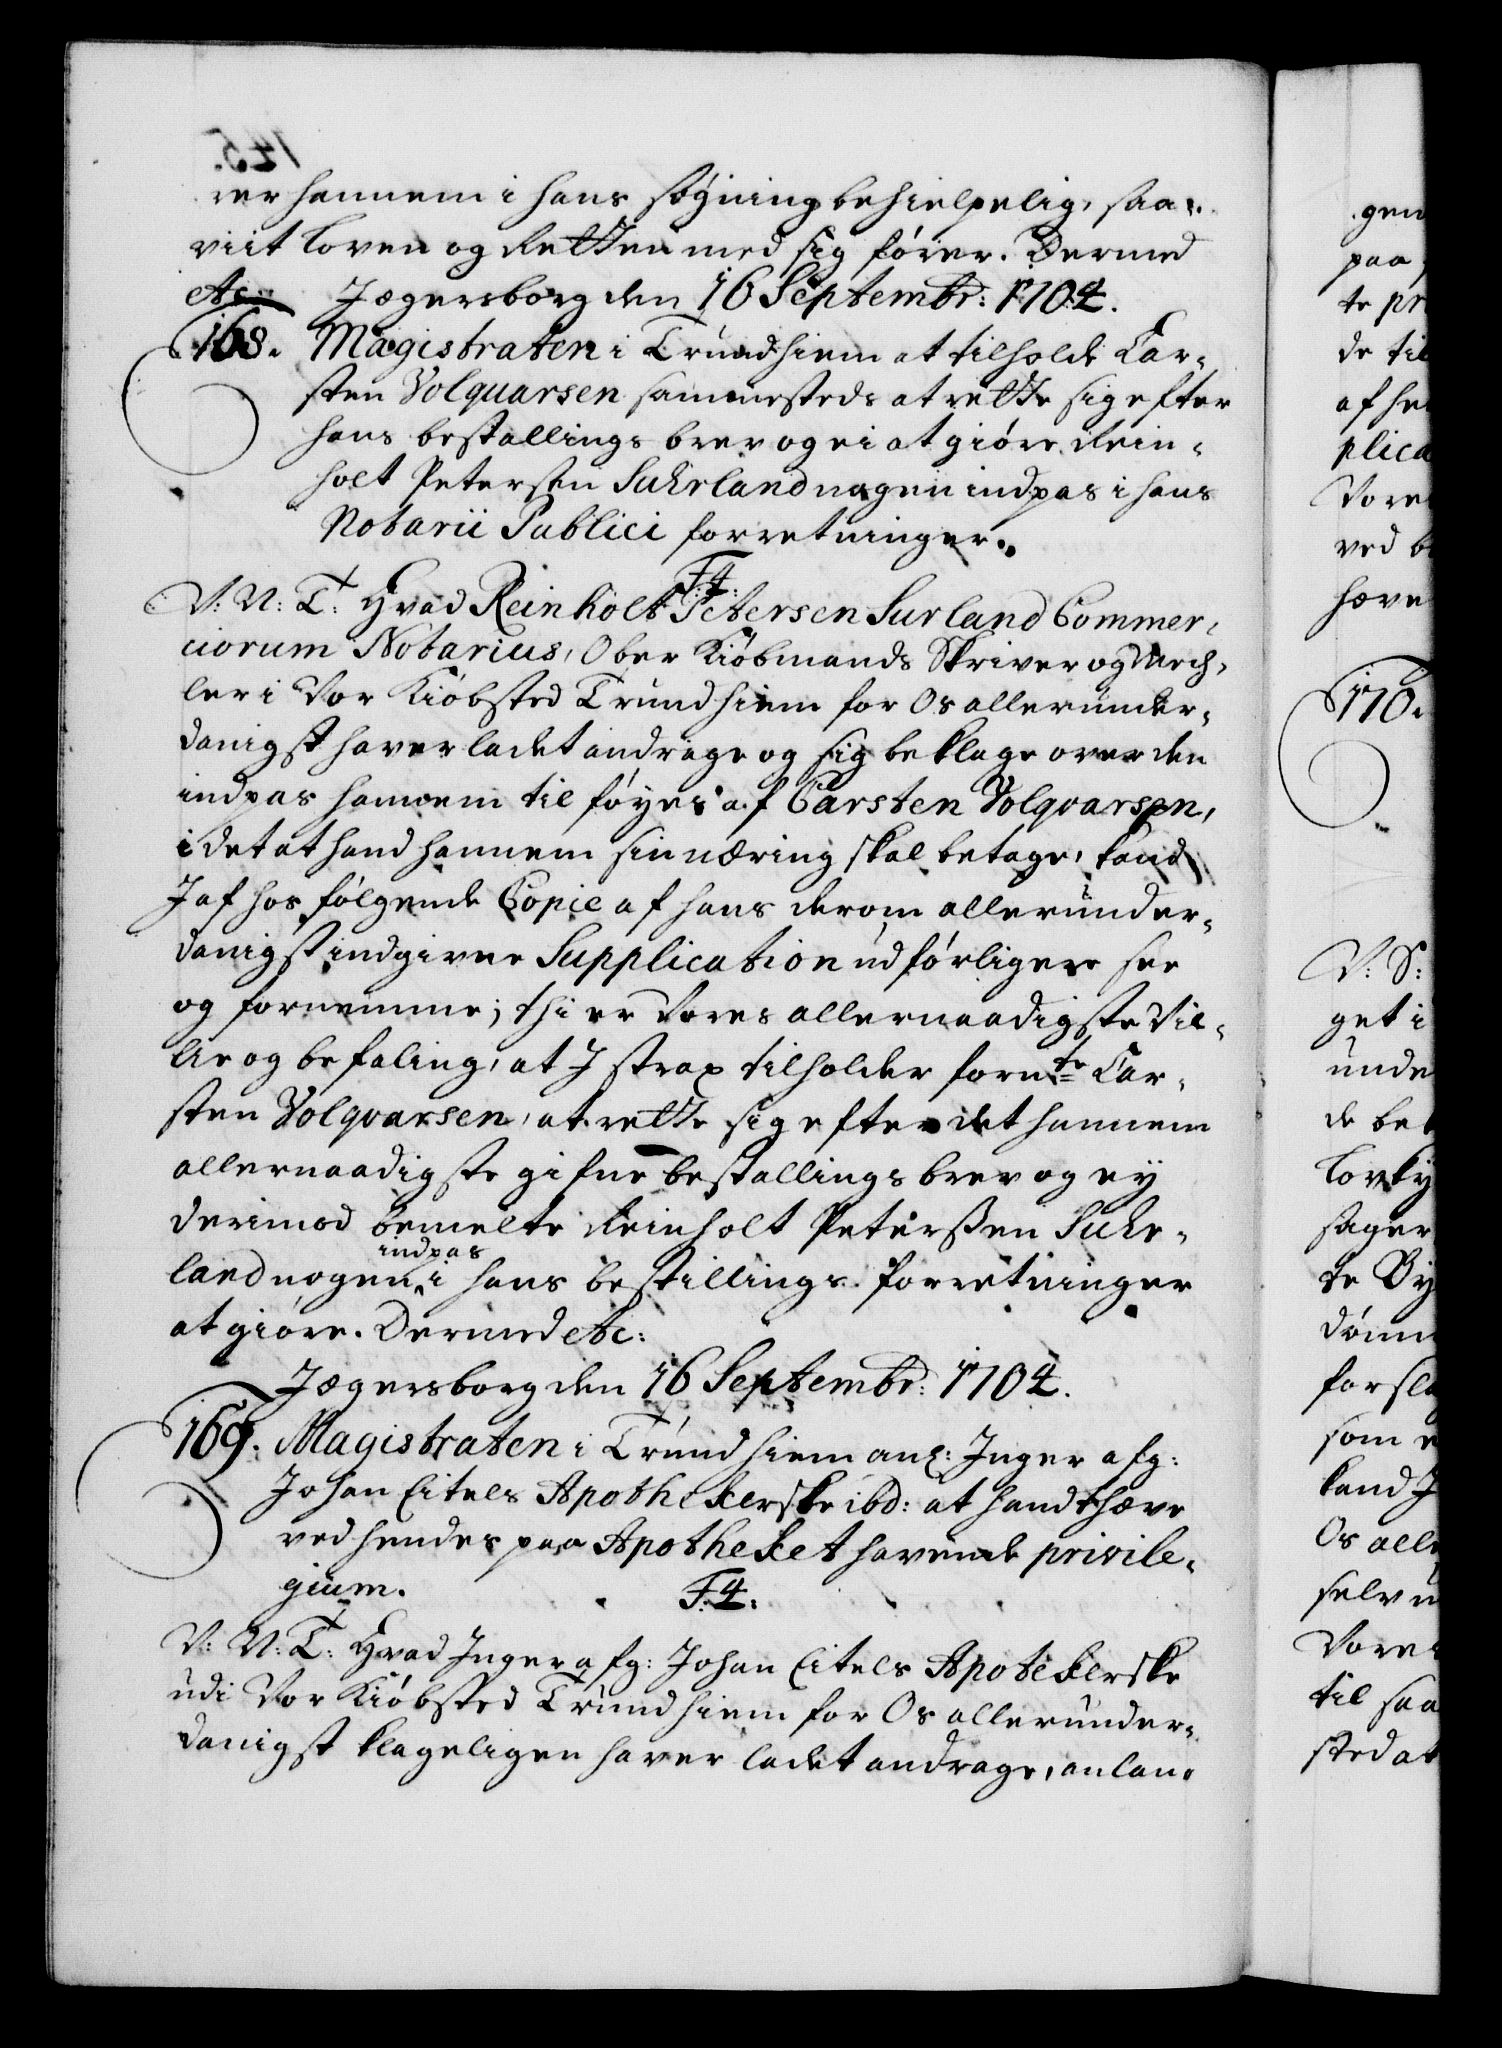 rer hannem i hans søgning behielpelig, saa-
viit Loven og Retten med sig fører. Dermed
etc: Jægersborg den 16 Septembr: 1704.
168. Magistraten i Trundhiem at tilholde Car-
sten Volquarsen sammesteds at rette sig efter
hans bestallings brev og ei at giøre Rein-
holt Petersen Suhrland nogen indpas i hans
Notarii Publici forretninger.
F:4:
V: N: T: Hvad Reinholt Petersen Surland Commer-
ciorum Notarius, Ober Kiøbmands Skriver og Mech-
ler i Vor Kiøbsted Trundhiem for Os allerunder-
danigst haver ladet andrage og sig beklage over den
indpas hannem til føyes af Carsten Volqvarsen,
i det at hand hannem sin næring skal betage, kand
J af hos følgende Copie af hans derom allerunder-
danigst indgivne Supplication udførligere see
og fornemme; thi er Vores allernaadigste Vil-
lie og befaling, at J strax tilholder fornte Car-
sten Volqvarsen, at rette sig efter det hannem
allernaadigste gifne bestallings brev og ey
derimod bemelte Reinholt Peterssen Suhr-
land nogen indpas i hans bestillings forretninger
at giøre. Dermed etc:
Jægersborg den 16 Septembr: 1704.
169. Magistraten i Trundhiem anl: Inger afg:
Johan Eitels Apothekerske ibd: at handthæve
ved hendes paa Apotheket havende privile-
gium. F:4:
V: N: T: Hvad Inger afg: Johan Eitels Apotekerske
udi Vor Kiøbsted Trundhiem for Os allerunder-
danigst klageligen haver ladet andrage, anlan-
gen
paa
te pr
de til
af he
plica
Vores
ved b
hæve
170.
V: S:
get i
unde
de bet
Lovky
sager
te By
dømm
forsla
som e
kand J
Os alle
selv u
Vores
til saa
sted at